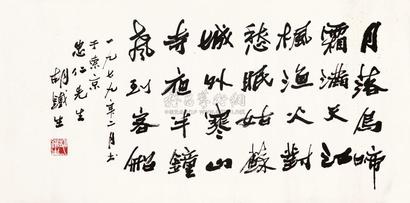 月落烏啼
霜滿天江
楓漁火對
愁眠姑蘇
城外寒山
寺夜半鐘
聲到客船
一九七九年二月书
于東京
忠仁先生
胡鐵生